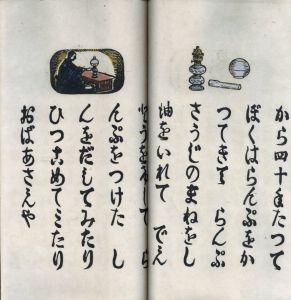 から四十年たつて
ぼくはらんぷをか
つてきて らんぷ
さうじのまねをし
油をいれて でん
とうをけして ら
んぷをつけた し
んをだしてみたり
ひつこめてみたり
おばあさんや